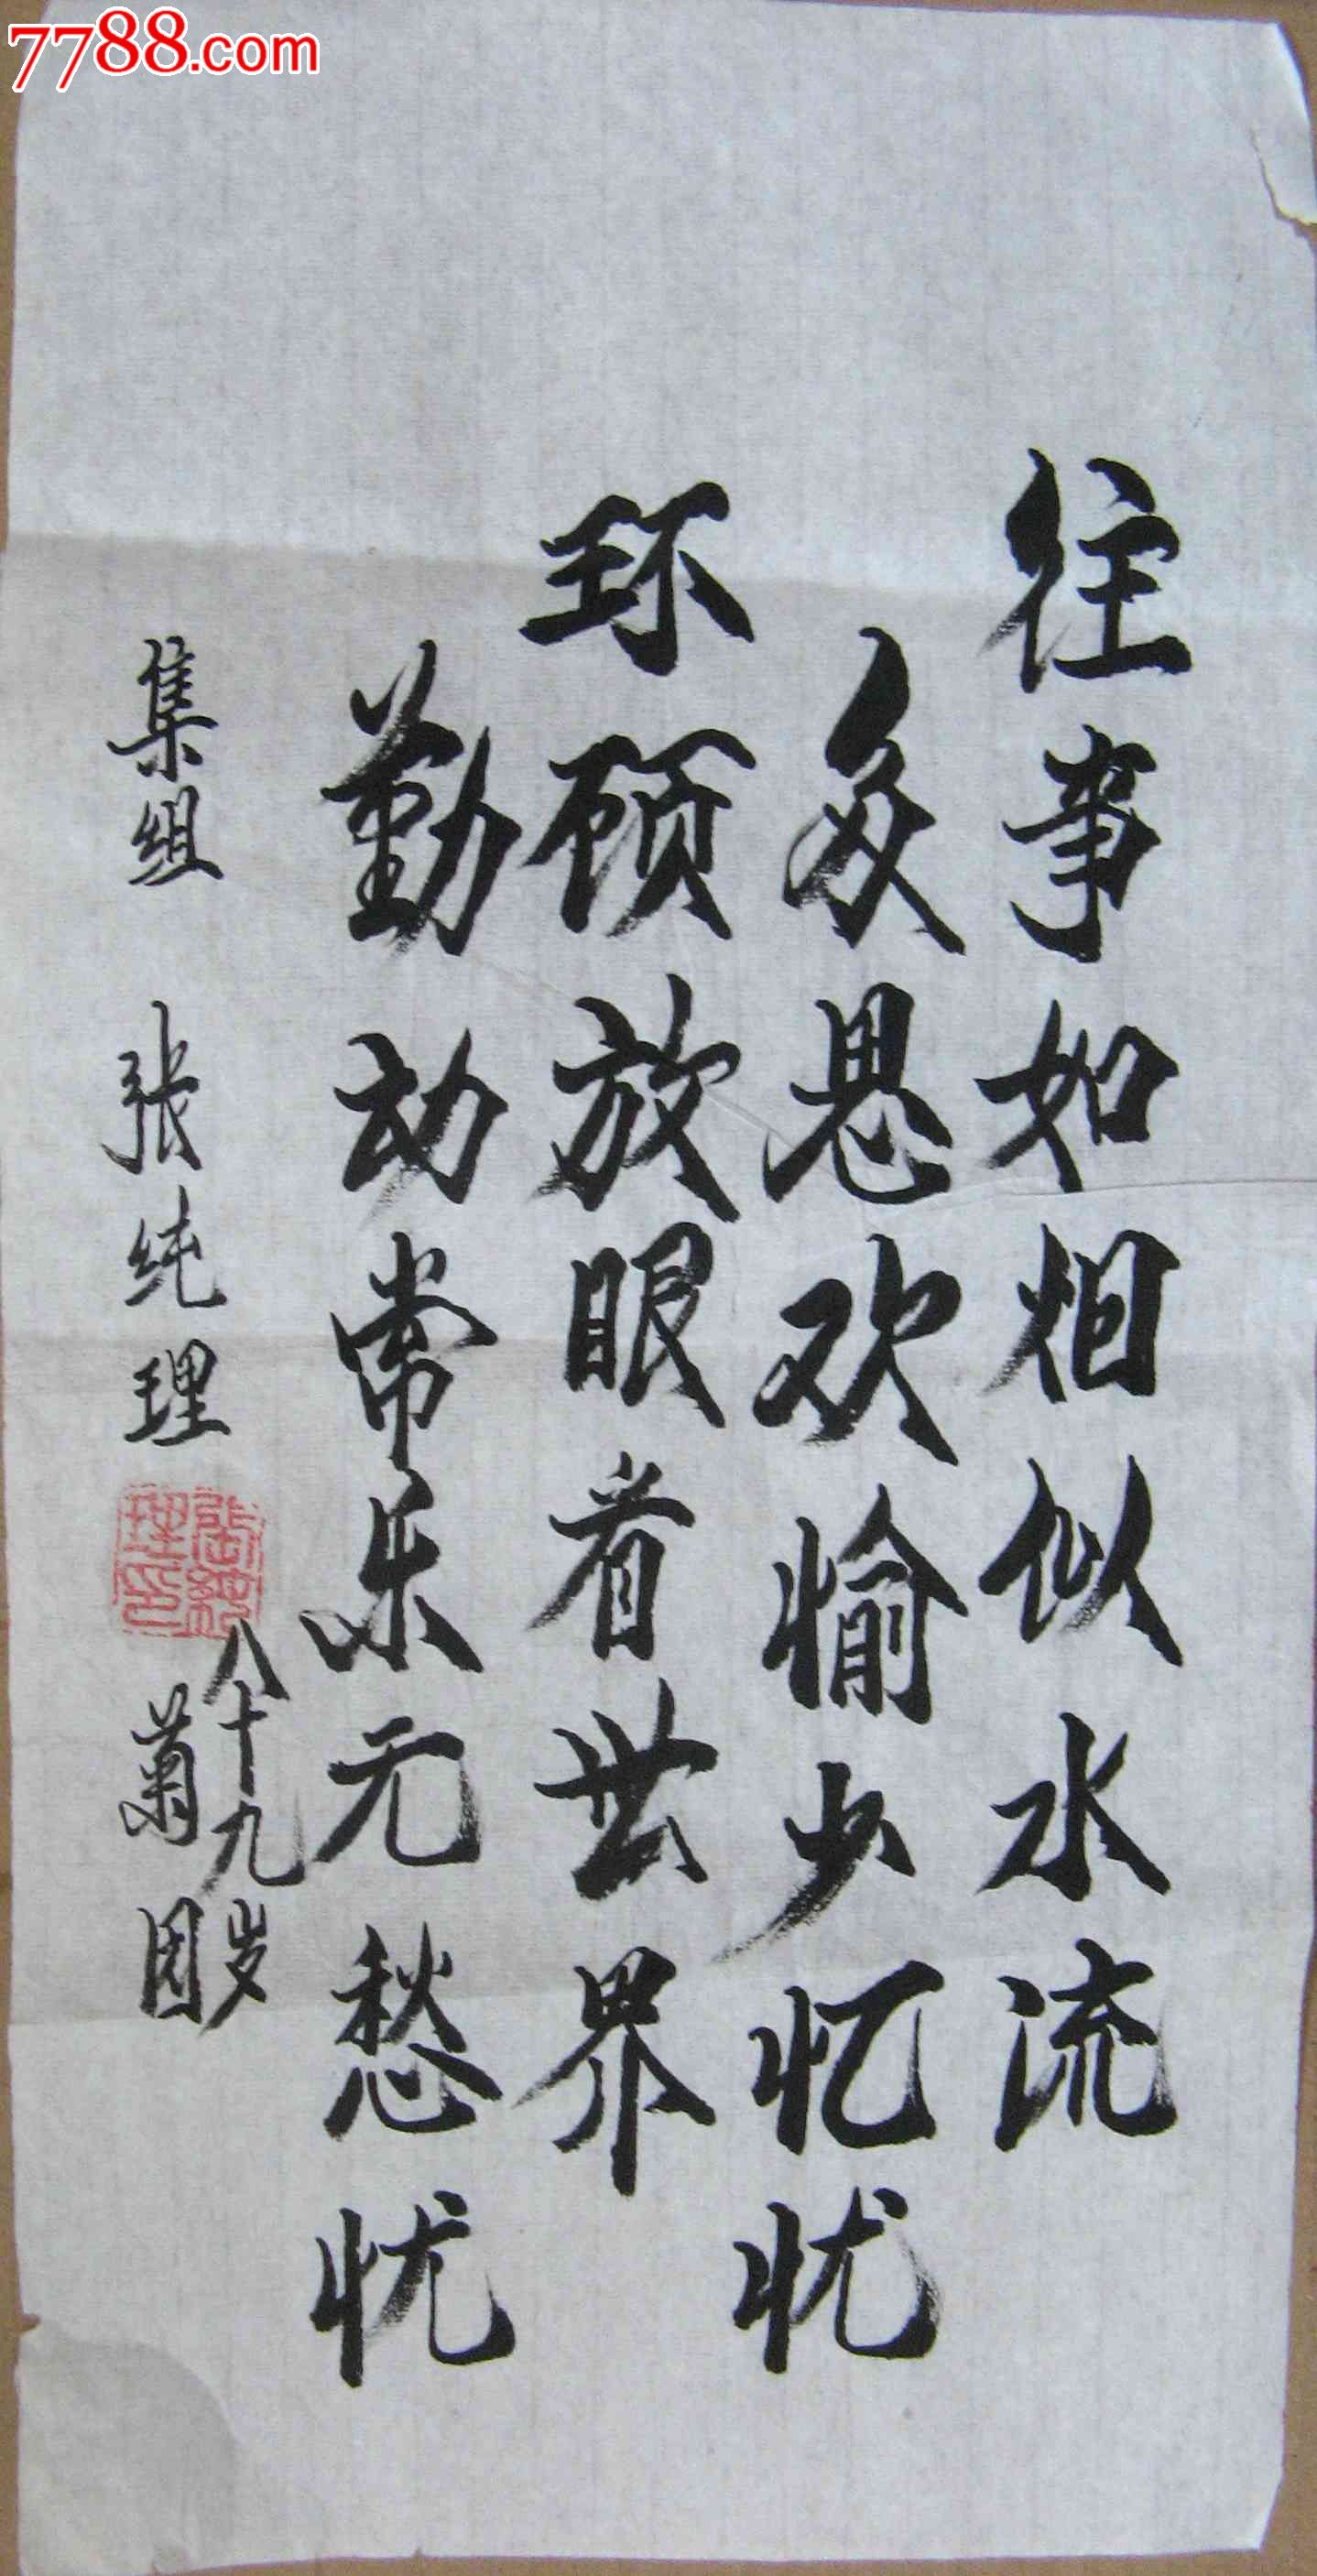 7788.com
往事如烟似水流
多思欢愉少忆忧
环顾放眼看世界
勤动常乐无愁忧
集组 张纯理
张纯理印
八十九岁